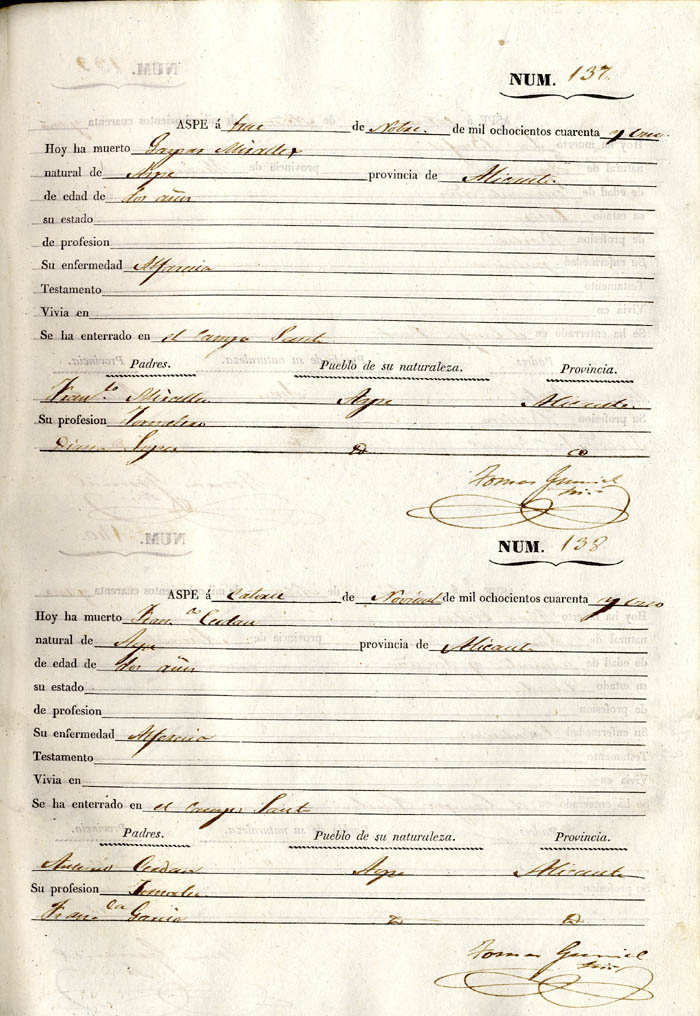 NUM. 137.
ASPE á trece de Nobre. de mil ochocientos cuarenta y uno.
Hoy ha muerto Gaspar Miralles
natural de Aspe provincia de Alicante
de edad de dos años
su estado
de profesion
Su enfermedad Alferecia
Testamento
Vivia en
Se ha enterrado en el Campo Santo
Padres. Pueblo de su naturaleza. Provincia.
Fran.co Miralles Aspe Alicante.
Su profesion Jornalero
Lopez
Tomas
NUM. 138.
ASPE á Catorce de de mil ochocientos cuarenta y uno
Hoy ha muerto Fran.co Cerdan
natural de Aspe provincia de Alicante
de edad de dos años
su estado
de profesion
Su enfermedad Alferecia
Testamento
Vivia en
Se ha enterrado en el Campo Santo
Padres. Pueblo de su naturaleza. Provincia.
Antonio Cerdan Aspe Alicante
Su profesion Jornalero
Fran.ca Garcia
Tomas